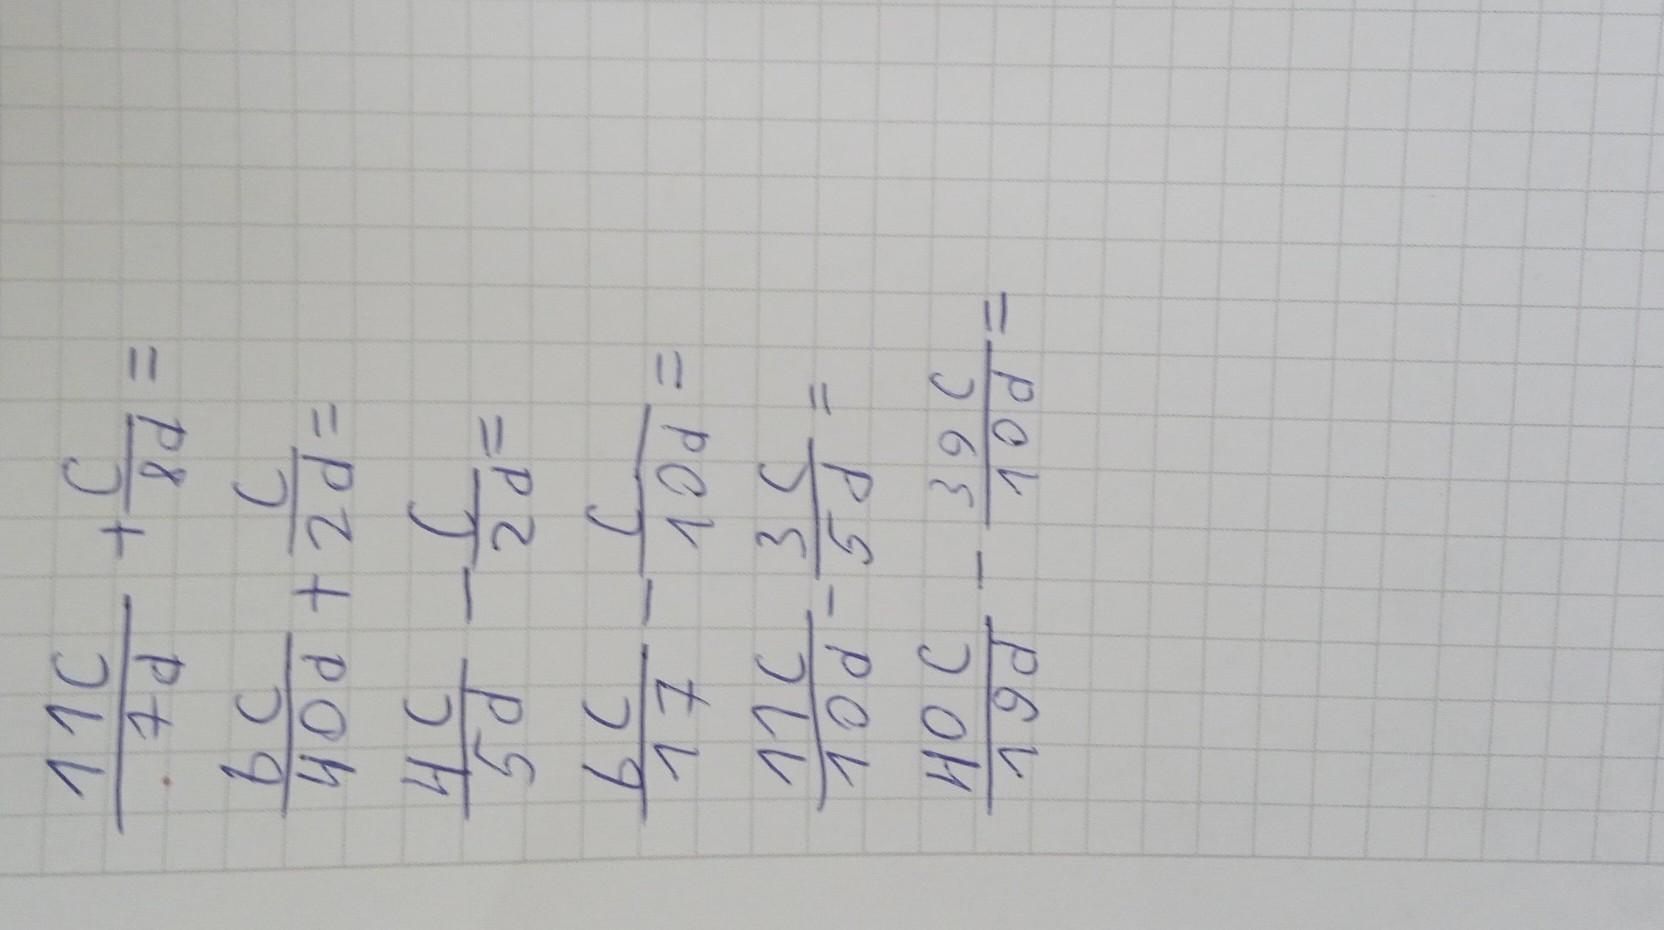 11c/7d + c/8d =
6c/40d + c/2d =
4c/5d - c/2d =
6c/17 - c/10d =
11c/10d - 3c/5d =
40c/19d - 39c/10d =